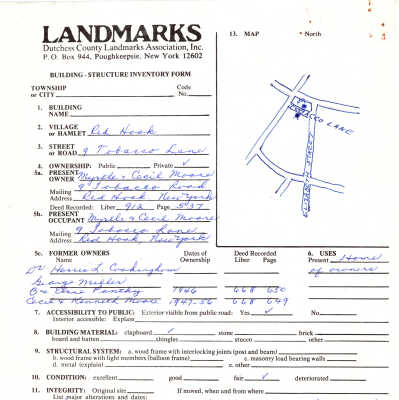 LANDMARKS
Dutchess County Landmarks Association, Inc.
P.O. Box 944, Poughkeepsie, New York 12602
BUILDING - STRUCTURE INVENTORY FORM
TOWNSHIP or CITY
Code No.
1. BUILDING NAME
2. VILLAGE or HAMLET Red Hook
3. STREET or ROAD 9 Tobacco Lane
4. OWNERSHIP: Public Private ✓
5a. PRESENT OWNER Myrtle & Cecil Moore
Mailing Address 9 Tobacco Road
Red Hook New York
Deed Recorded: Liber 912 Page 537
5b. PRESENT OCCUPANT Myrtle & Cecil Moore
Mailing Address 9 Tobacco Lane
Red Hook, New York
5c. FORMER OWNERS Name Dates of Ownership Deed Recorded Liber Page
Dr Harris L. Cookingham
George
1946 668 650
Cecil & Kenneth Moore 1947-56 668 649
6. USES
Present Home of owners
Other
7. ACCESSIBILITY TO PUBLIC: Exterior visible from public road: Yes ✓ No
Interior accessible: Explain
8. BUILDING MATERIAL: clapboard ✓ stone brick
board and batten shingles stucco other
9. STRUCTURAL SYSTEM: a. wood frame with interlocking joints (post and beam)
b. wood frame with light members (balloon frame) c. masonry load bearing walls
d. metal (explain) e. other
10. CONDITION: excellent good fair ✓ deteriorated
11. INTEGRITY: Original site If moved, when and from where
List major alterations and dates:
13. MAP North
TOBACCO LANE